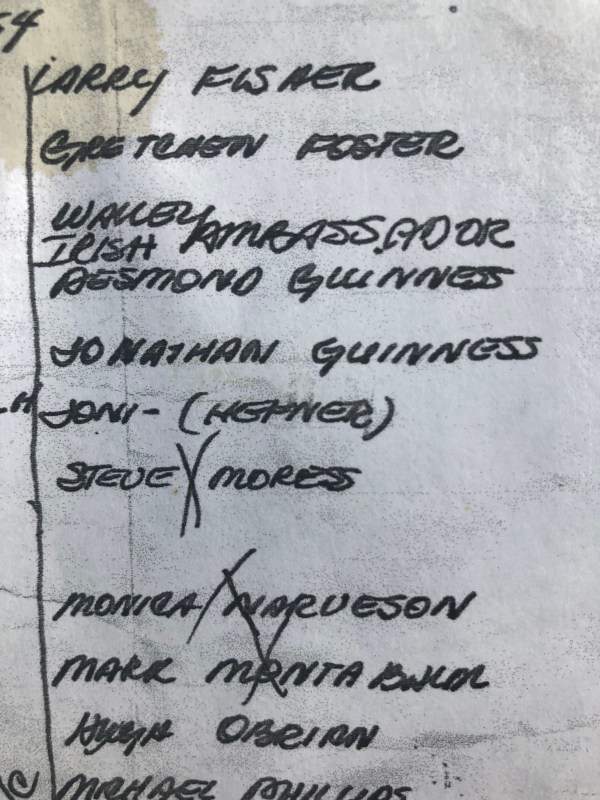 54
LARRY FISHER
GRETCHEN FOSTER
WALLEY
IRISH AMBASSADOR
DESMOND GUINNESS
JONATHAN GUINNESS
JONI - (HEFNER)
STEVE MORESS
MONICA NARVESON
MARK
HUGH OBRIAN
MICHAEL PHILLIPS